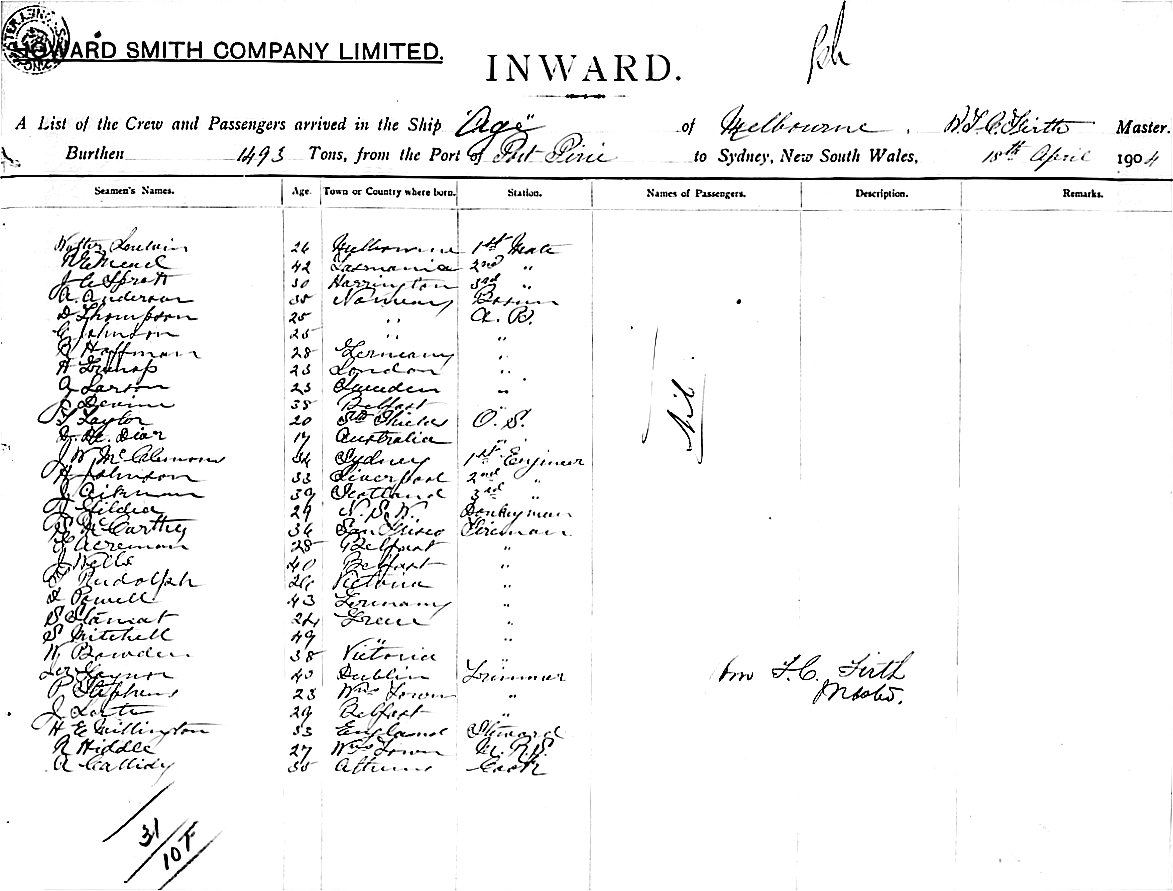 HOWARD SMITH COMPANY LIMITED.
INWARD.
A List of the Crew and Passengers arrived in the Ship "Age" of Melbourne, W. F. C. Firth Master.
Burthen 1493 Tons, from the Port of Port Pirie to Sydney, New South Wales, 18th April 1904
Seamen's Names. Age. Town or Country where born. Station. Names of Passengers. Description. Remarks.
26 Melbourne 1st Mate
42 Tasmania 2nd "
J C Spratt 30 Harrington 3rd "
A. Anderson 35 Norway Bosun
D Thompson 25 " A. B.
Johnson 25 " "
Hoffman 28 Germany "
H 23 London "
A Larson 23 Sweden "
J Devine 38 Belfast "
Taylor 20 Sth Shields O. S.
17 Australia "
J W McClemons 34 Sydney 1st Engineer
A Johnson 33 Liverpool 2nd "
J Aikman 39 Scotland 3rd "
29 N. S. W. Donkeyman
McCarthy 36 San Frisco Fireman
Acreman 28 Belfast "
J Wells 40 Belfast "
Rudolph 26 Victoria "
Powell 43 Germany "
S Stamat 24 "
S Mitchell 49 " "
W Bowden 38 Victoria "
Gaynor 43 Dublin Trimmer
P Stephens 23 Wms Town "
J 29 Belfast "
H E Millington 33 England Steward
Hiddle 27 Wms Town M. R. S.
A Callidy 35 Cook
Nil
Wm F. C. Firth
Master.
31
10 F